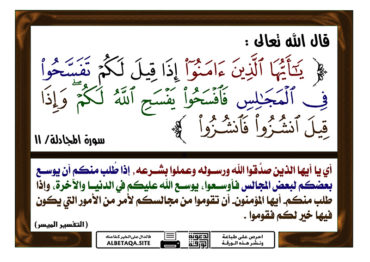 قال الله تعالى :
﴿ يَـٰٓأَيُّهَا ٱلَّذِينَ ءَامَنُوٓا۟ إِذَا قِيلَ لَكُمْ تَفَسَّحُوا۟
فِى ٱلْمَجَـٰلِسِ فَٱفْسَحُوا۟ يَفْسَحِ ٱللَّهُ لَكُمْ ۖ وَإِذَا
قِيلَ ٱنشُزُوا۟ فَٱنشُزُوا۟ ﴾
سورة المجادلة/ ١١
أي يا أيها الذين صدَّقوا الله ورسوله وعملوا بشرعه، إذا طُلب منكم أن يوسع
بعضكم لبعض المجالس فأوسعوا، يوسع الله عليكم في الدنيا والآخرة، وإذا
طلب منكم- أيها المؤمنون- أن تقوموا من مجالسكم لأمر من الأمور التي يكون
فيها خير لكم فقوموا .
(التفسير الميسر)
ALBETAQA.SITE
احرص على طباعة
ونشر هذه الورقة